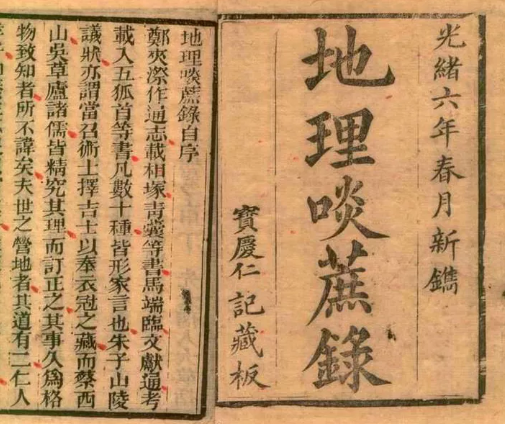 光緒六年春月新鐫
地理啖蔗錄
寶慶仁記藏板
地理啖蔗錄自序
鄭夾漈作通志載相塚青囊等書馬端臨文獻通考
載入五狐首等書凡數十種皆形家言也朱子山陵
議狀亦謂當召術士擇吉土以奉衣冠之藏而蔡西
山吳草廬諸儒皆精究其理而訂正之其事久爲格
物致知者所不諱矣夫世之營地者其道有二仁人